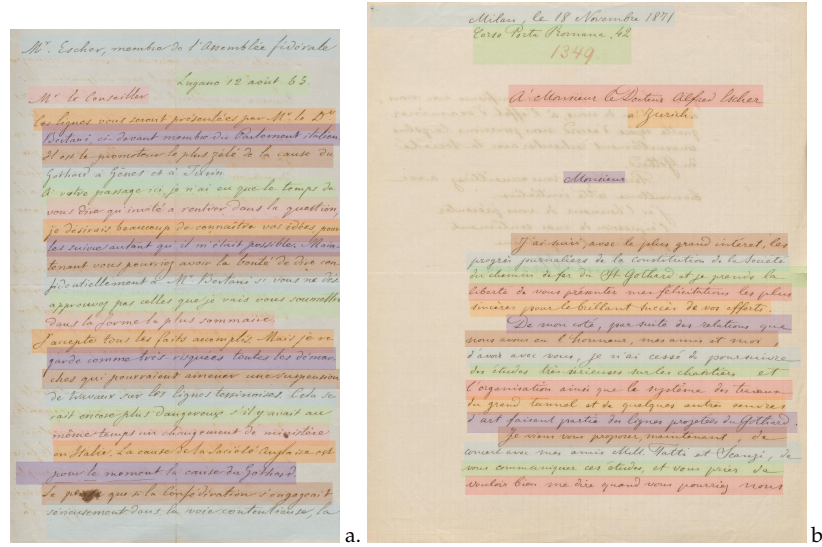 Mr. Escher, membre de l'Assemblée fédérale
Lugano 12 août 63.
Mr. le Conseiller
Ces lignes vous seront présentées par Mr. le Dr.
Bertani, ci-devant membre du Parlement italien.
Il est le promoteur le plus zélé de la cause du
Gothard à Gênes et à Turin.
A votre passage ici, je n'ai eu que le temps de
vous dire qu'invité à rentrer dans la question,
je désirais beaucoup de connaître vos idées, pour
les suivre autant qu'il m'était possible. Main-
tenant vous pourriez avoir la bonté de dire con-
fidentiellement à Mr. Bertani si vous ne dés-
approuvez pas celles que je vais vous soumettre
dans la forme la plus sommaire.
J'accepte tous les faits accomplis. Mais je re-
garde comme très risquées toutes les démar-
ches qui pourraient amener une suspension
de travaux sur les lignes tessinoises. Cela se-
rait encore plus dangereux s'il y avait au
même temps un changement de ministère
en Italie. La cause de la Société Anglaise est
pour le moment la cause du Gothard
Je pense que si la Confédération s'engageait
sérieusement dans la voie contentieuse, la
a.
Milan, le 18 Novembre 1871
Corso Porta Romana, 42
1349.
A Monsieur le Docteur Alfred Escher
à Zurich.
Monsieur
J'ai suivi, avec le plus grand intérêt, les
progrès journaliers de la constitution de la Société
du chemin de fer du St Gothard et je prends la
liberté de vous présenter mes félicitations les plus
sincères pour le brillant succès de vos efforts.
De mon coté, par suite des relations que
nous avons eu l'honneur, mes amis et moi
d'avoir avec vous, je n'ai cessé de poursuivre
des études très sérieuses sur les chantiers et
l'organisation ainsi que le système des travaux
du grand tunnel et de quelques autres oeuvres
d'art faisant partie des lignes projetées du Gothard.
Je viens vous proposer, maintenant, de
concert avec mes amis Mill. Tatti et, de
vous communiquer ces études, et vous prier de
vouloir bien me dire quand vous pourriez nous
b